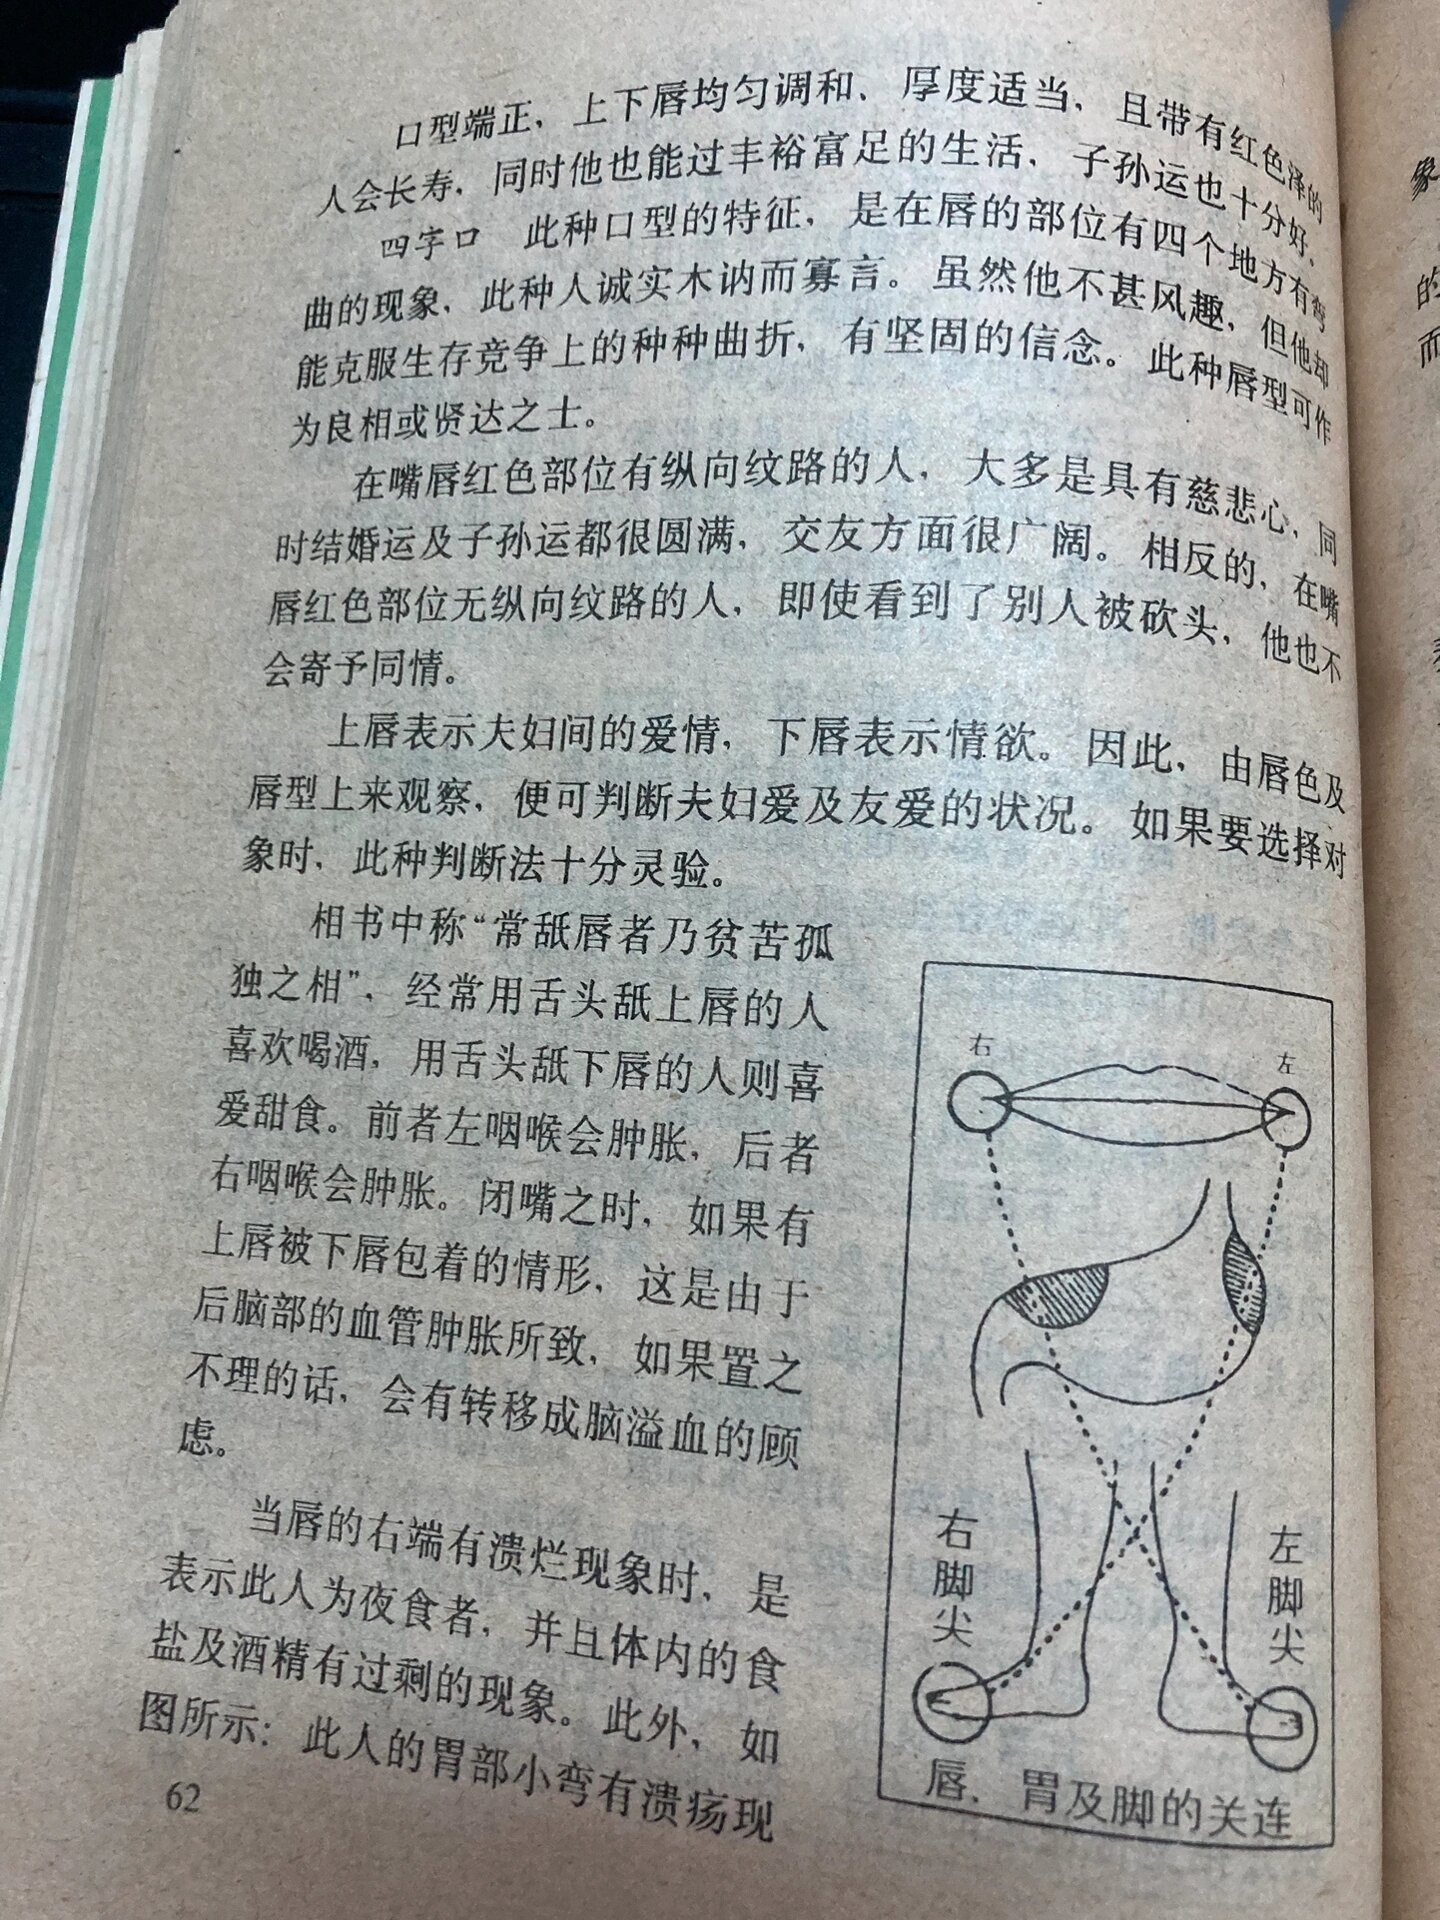 口型端正，上下唇均匀调和、厚度适当，且带有红色泽的
人会长寿，同时他也能过丰裕富足的生活，子孙运也十分好。
四字口　此种口型的特征，是在唇的部位有四个地方有弯
曲的现象，此种人诚实木讷而寡言。虽然他不甚风趣，但他却
能克服生存竞争上的种种曲折，有坚固的信念。此种唇型可作
为良相或贤达之士。
在嘴唇红色部位有纵向纹路的人，大多是具有慈悲心，同
时结婚运及子孙运都很圆满，交友方面很广阔。相反的，在嘴
唇红色部位无纵向纹路的人，即使看到了别人被砍头，他也不
会寄予同情。
上唇表示夫妇间的爱情，下唇表示情欲。因此，由唇色及
唇型上来观察，便可判断夫妇爱及友爱的状况。如果要选择对
象时，此种判断法十分灵验。
相书中称“常舐唇者乃贫苦孤
独之相”，经常用舌头舐上唇的人
喜欢喝酒，用舌头舐下唇的人则喜
爱甜食。前者左咽喉会肿胀，后者
右咽喉会肿胀。闭嘴之时，如果有
上唇被下唇包着的情形，这是由于
后脑部的血管肿胀所致，如果置之
不理的话，会有转移成脑溢血的顾
虑。
当唇的右端有溃烂现象时，是
表示此人为夜食者，并且体内的食
盐及酒精有过剩的现象。此外，如
图所示：此人的胃部小弯有溃疡现
62
右
左
右脚尖
左脚尖
唇、胃及脚的关连
象
的
而